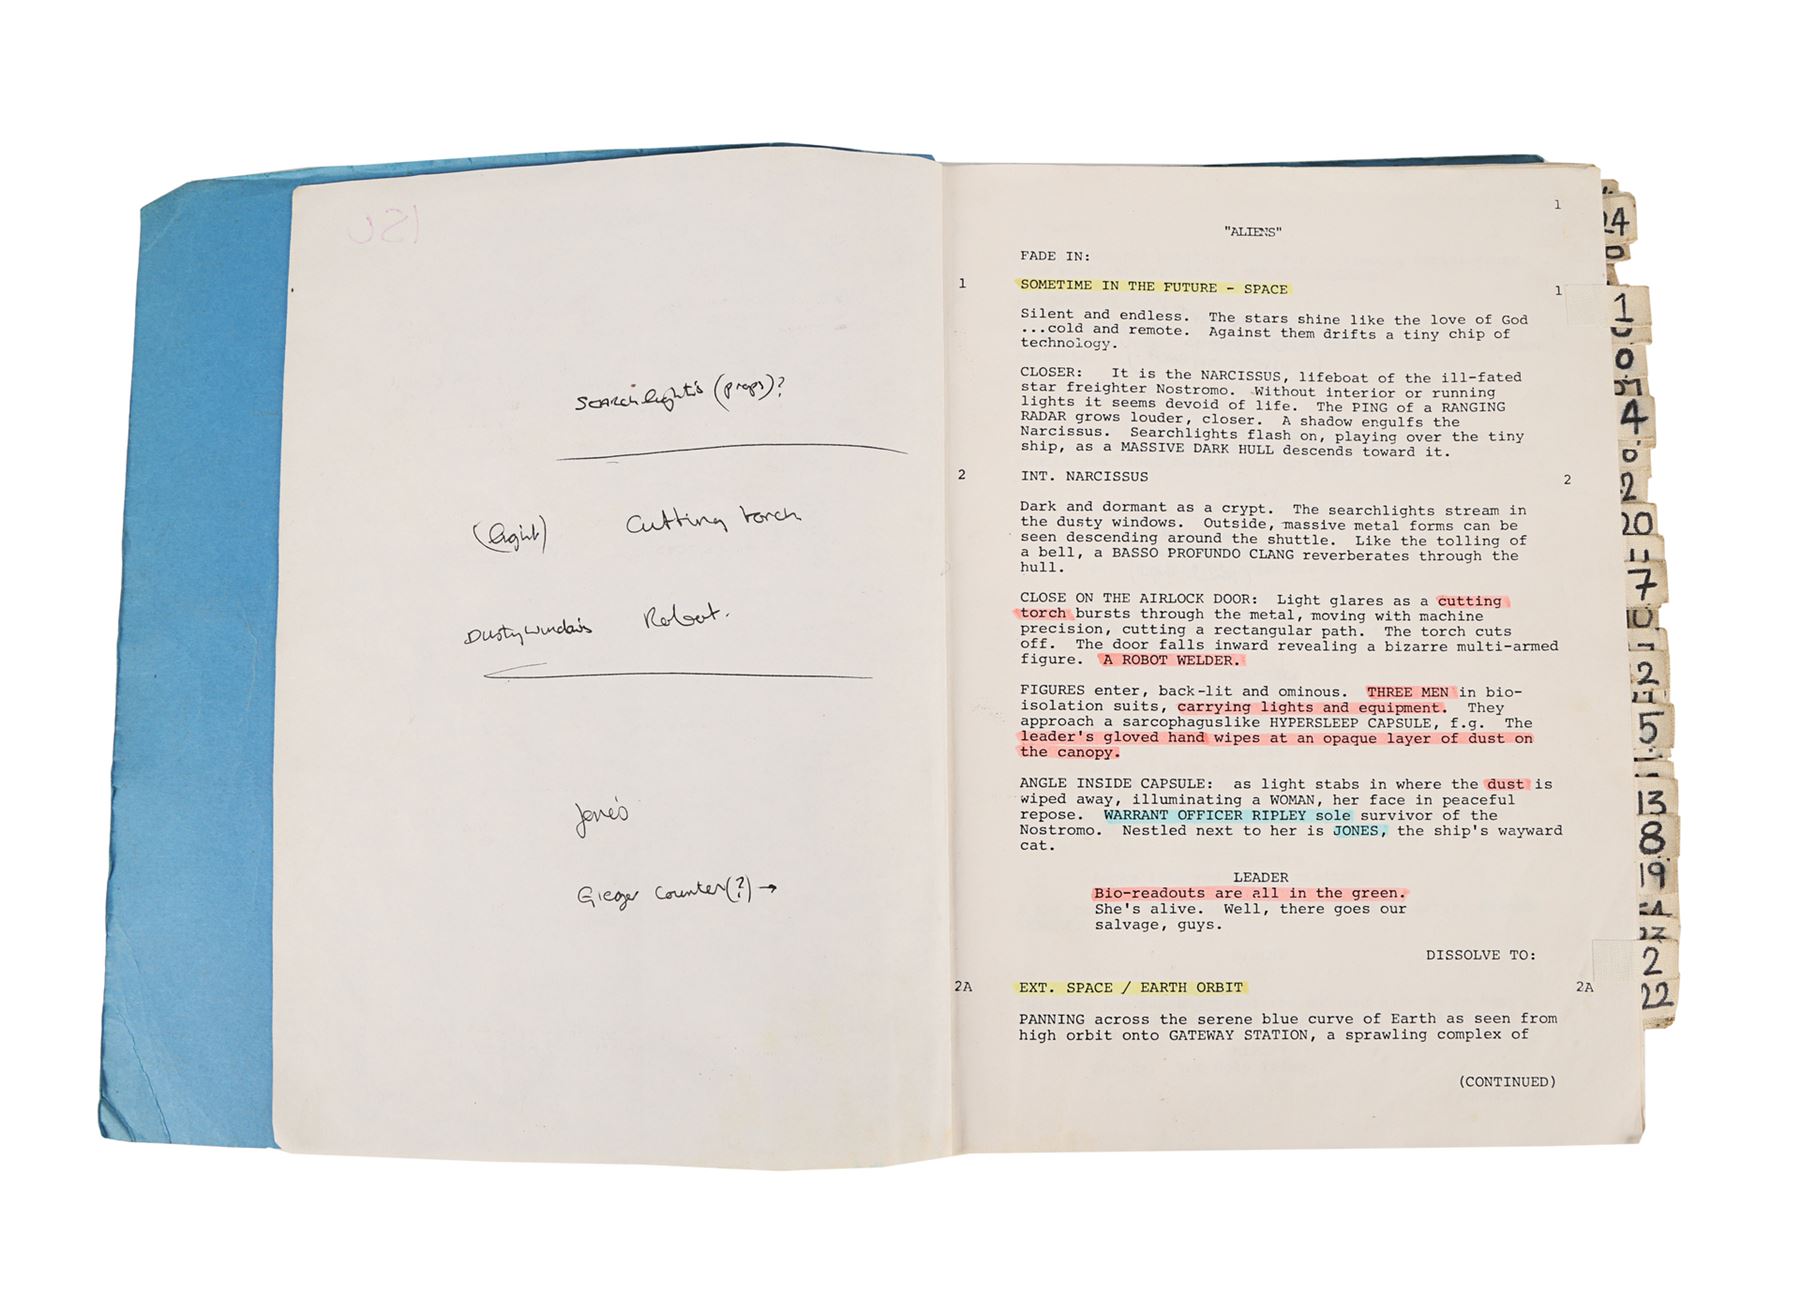 Searchlight's (props)?
(light) Cutting torch
Dusty windows Robot.
Jones
Gieger Counter(?) →
1
"ALIENS"
FADE IN:
1 SOMETIME IN THE FUTURE - SPACE 1
Silent and endless. The stars shine like the love of God
...cold and remote. Against them drifts a tiny chip of
technology.
CLOSER: It is the NARCISSUS, lifeboat of the ill-fated
star freighter Nostromo. Without interior or running
lights it seems devoid of life. The PING of a RANGING
RADAR grows louder, closer. A shadow engulfs the
Narcissus. Searchlights flash on, playing over the tiny
ship, as a MASSIVE DARK HULL descends toward it.
2 INT. NARCISSUS 2
Dark and dormant as a crypt. The searchlights stream in
the dusty windows. Outside, massive metal forms can be
seen descending around the shuttle. Like the tolling of
a bell, a BASSO PROFUNDO CLANG reverberates through the
hull.
CLOSE ON THE AIRLOCK DOOR: Light glares as a cutting
torch bursts through the metal, moving with machine
precision, cutting a rectangular path. The torch cuts
off. The door falls inward revealing a bizarre multi-armed
figure. A ROBOT WELDER.
FIGURES enter, back-lit and ominous. THREE MEN in bio-
isolation suits, carrying lights and equipment. They
approach a sarcophaguslike HYPERSLEEP CAPSULE, f.g. The
leader's gloved hand wipes at an opaque layer of dust on
the canopy.
ANGLE INSIDE CAPSULE: as light stabs in where the dust is
wiped away, illuminating a WOMAN, her face in peaceful
repose. WARRANT OFFICER RIPLEY sole survivor of the
Nostromo. Nestled next to her is JONES, the ship's wayward
cat.
LEADER
Bio-readouts are all in the green.
She's alive. Well, there goes our
salvage, guys.
DISSOLVE TO:
2A EXT. SPACE / EARTH ORBIT 2A
PANNING across the serene blue curve of Earth as seen from
high orbit onto GATEWAY STATION, a sprawling complex of
(CONTINUED)
24
1
0
4
2
20
11
7
10
2
5
13
8
19
23
2
22